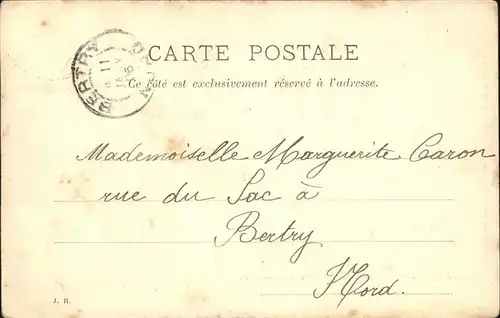 CARTE POSTALE
Ce côté est exclusivement réservé à l'adresse.
BERTRY
11
Mademoiselle Marguerite Caron
rue du Sac à
Bertry
Nord.
J. R.